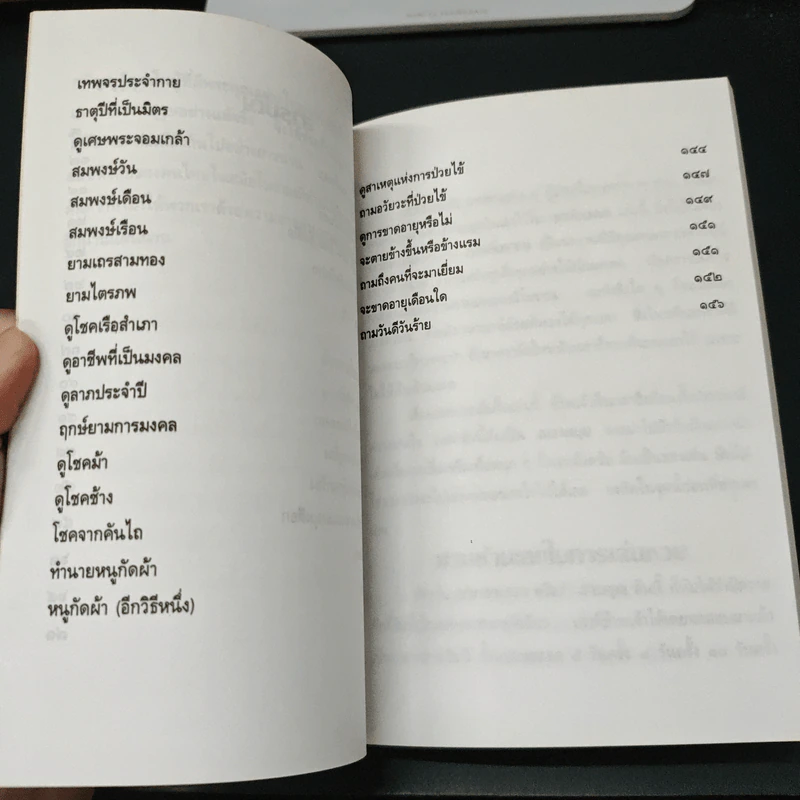 เทพจรประจำกาย
ธาตุปีที่เป็นมิตร
ดูเศษพระจอมเกล้า
สมพงษ์วัน
สมพงษ์เดือน
สมพงษ์เรือน
ยามเถรสามทอง
ยามไตรภพ
ดูโชคเรือสำเภา
ดูอาชีพที่เป็นมงคล
ดูลาภประจำปี
ฤกษ์ยามการมงคล
ดูโชคม้า
ดูโชคช้าง
โชคจากคันไถ
ทำนายหนูกัดผ้า
หนูกัดผ้า (อีกวิธีหนึ่ง)
ดูสาเหตุแห่งการป่วยไข้ ๑๔๔
ถามอวัยวะที่ป่วยไข้ ๑๔๗
ดูการขาดอายุหรือไม่ ๑๔๙
จะตายข้างขึ้นหรือข้างแรม ๑๕๑
ถามถึงคนที่จะมาเยี่ยม ๑๕๑
จะขาดอายุเดือนใด ๑๕๒
ถามวันดีวันร้าย ๑๕๖